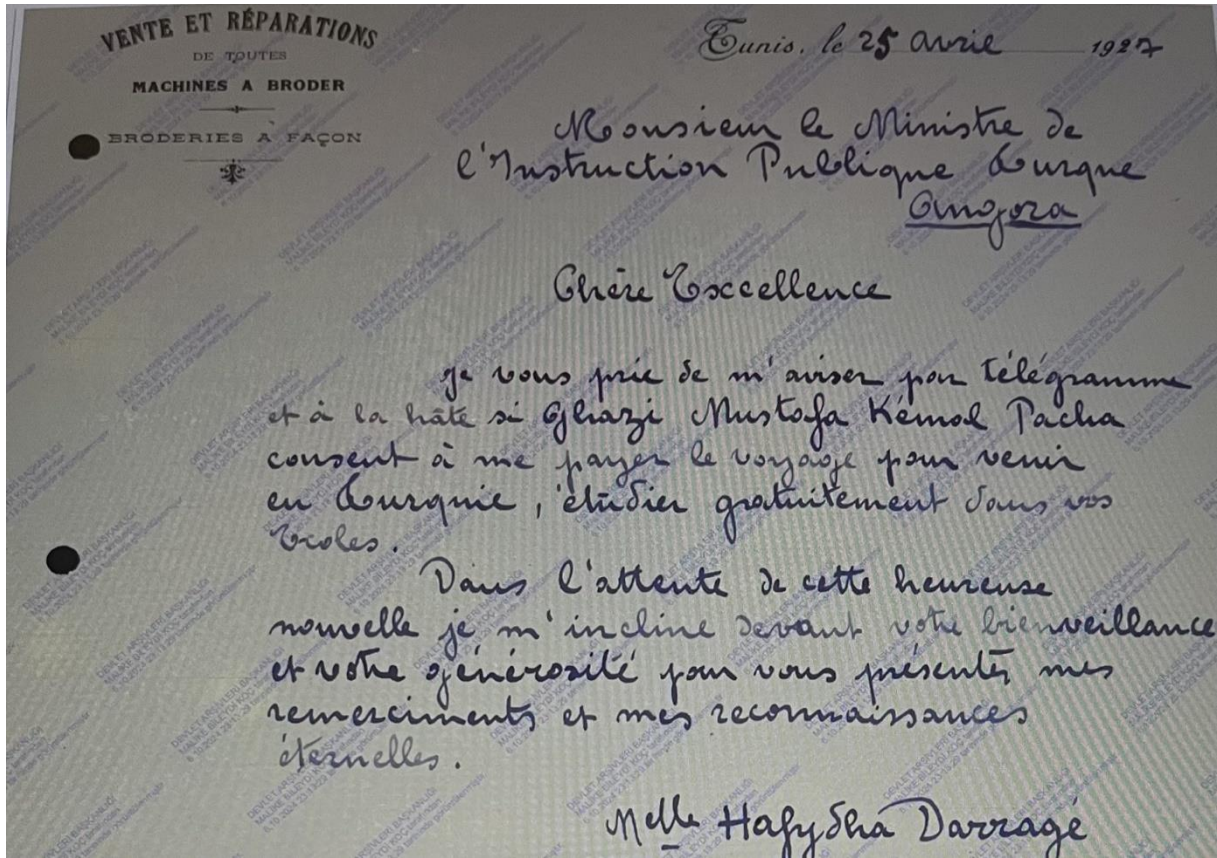 VENTE ET RÉPARATIONS
DE TOUTES
MACHINES A BRODER
BRODERIES A FAÇON
Tunis, le 25 avril 1927
Monsieur le Ministre de
l'Instruction Publique Turque
Angora
Chère Excellence
je vous prie de m'aviser par télégramme
et à la hâte si Ghazi Mustafa Kémal Pacha
consent à me payer le voyage pour venir
en Turquie, étudier gratuitement dans vos
Ecoles.
Dans l'attente de cette heureuse
nouvelle je m'incline devant votre bienveillance
et votre générosité pour vous présenter mes
remerciments et mes reconnaissances
éternelles.
Melle Hafydha Darragé